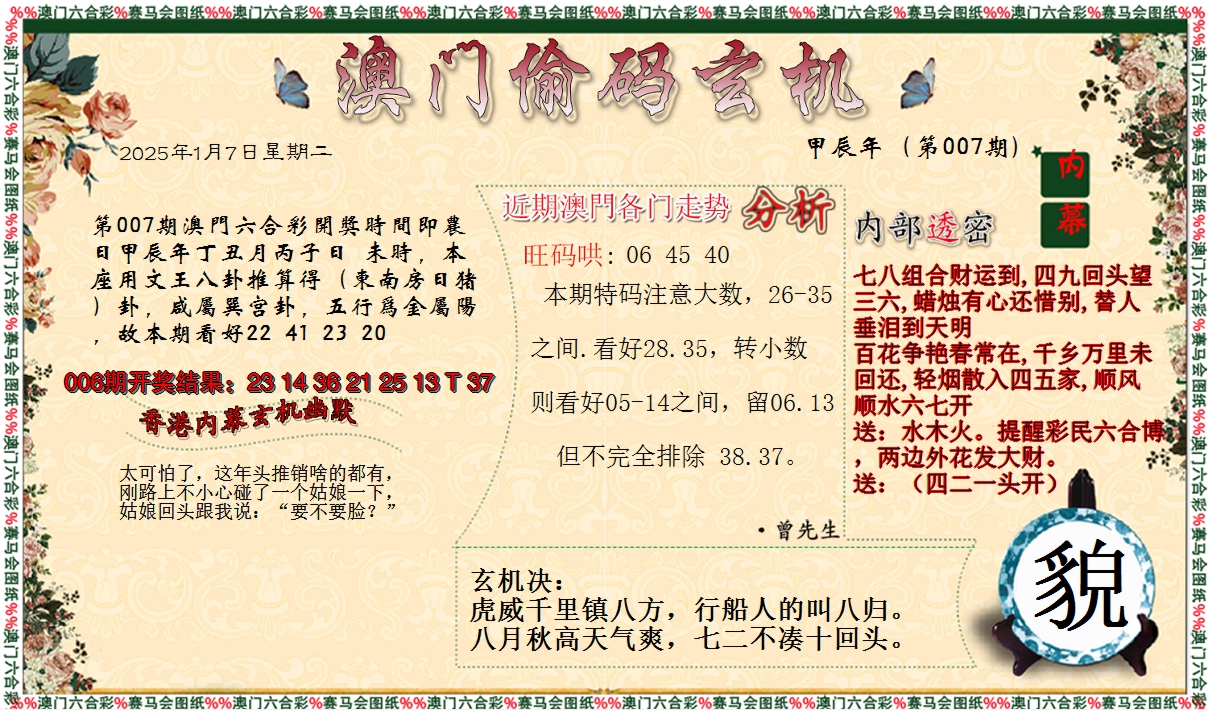 %%澳门六合彩%赛马会图纸%%澳门六合彩%赛马会图纸%%澳门六合彩%赛马会图纸%%澳门六合彩%赛马会图纸%%澳门六合彩%赛马会图纸%%澳门六合彩%赛马会图纸%%
澳门偷码玄机
2025年1月7日星期二
甲辰年（第007期）
内幕
第007期澳門六合彩開獎時間即農
日甲辰年丁丑月丙子日 未時，本
座用文王八卦推算得（東南房日猪
）卦，咸屬巽宫卦，五行爲金屬陽
，故本期看好22 41 23 20
006期开奖结果：23 14 36 21 25 13 T 37
香港内幕玄机幽默
太可怕了，这年头推销啥的都有，
刚路上不小心碰了一个姑娘一下，
姑娘回头跟我说：“要不要脸？”
近期澳門各门走势 分析
旺码哄: 06 45 40
本期特码注意大数，26-35
之间.看好28.35，转小数
则看好05-14之间，留06.13
但不完全排除 38.37。
·曾先生
内部透密
七八组合财运到,四九回头望
三六,蜡烛有心还惜别,替人
垂泪到天明
百花争艳春常在,千乡万里未
回还,轻烟散入四五家,顺风
顺水六七开
送：水木火。提醒彩民六合博
，两边外花发大财。
送：（四二一头开）
玄机决：
虎威千里镇八方，行船人的叫八归。
八月秋高天气爽，七二不凑十回头。
貌
%%澳门六合彩%赛马会图纸%%澳门六合彩%赛马会图纸%%澳门六合彩%赛马会图纸%%澳门六合彩%赛马会图纸%%澳门六合彩%赛马会图纸%%澳门六合彩%赛马会图纸%%